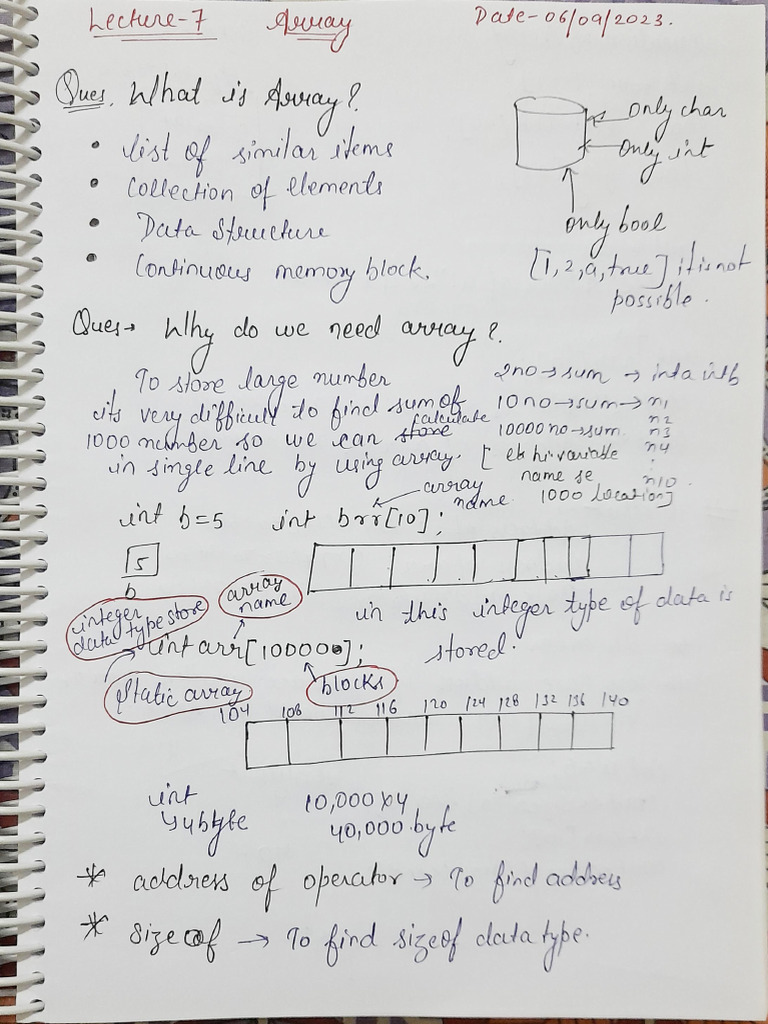 Lecture-7 Array Date-06/09/2023.
Ques. What is Array?
• list of similar items
• collection of elements
• Data Structure
• Continuous memory block.
only char
only int
only bool
[1,2,a,true] it is not
possible.
Ques→ Why do we need array?
To store large number
its very difficult to find sum of
1000 number so we can calculate
in single line by using array.
2no→sum → int a int b
10no→sum→ n1
10000no→sum. n2
n3
n4
:
n10.
[ ek hi variable
name se
1000 location]
array
name
int b=5 int brr[10];
5
b
in this integer type of data is
stored.
integer
data type store
array
name
int arr[10000];
Static array
blocks
104 108 112 116 120 124 128 132 136 140
int
↳4byte
10,000x4
40,000.byte
* address of operator → To find address
* Size of → To find sizeof data type.